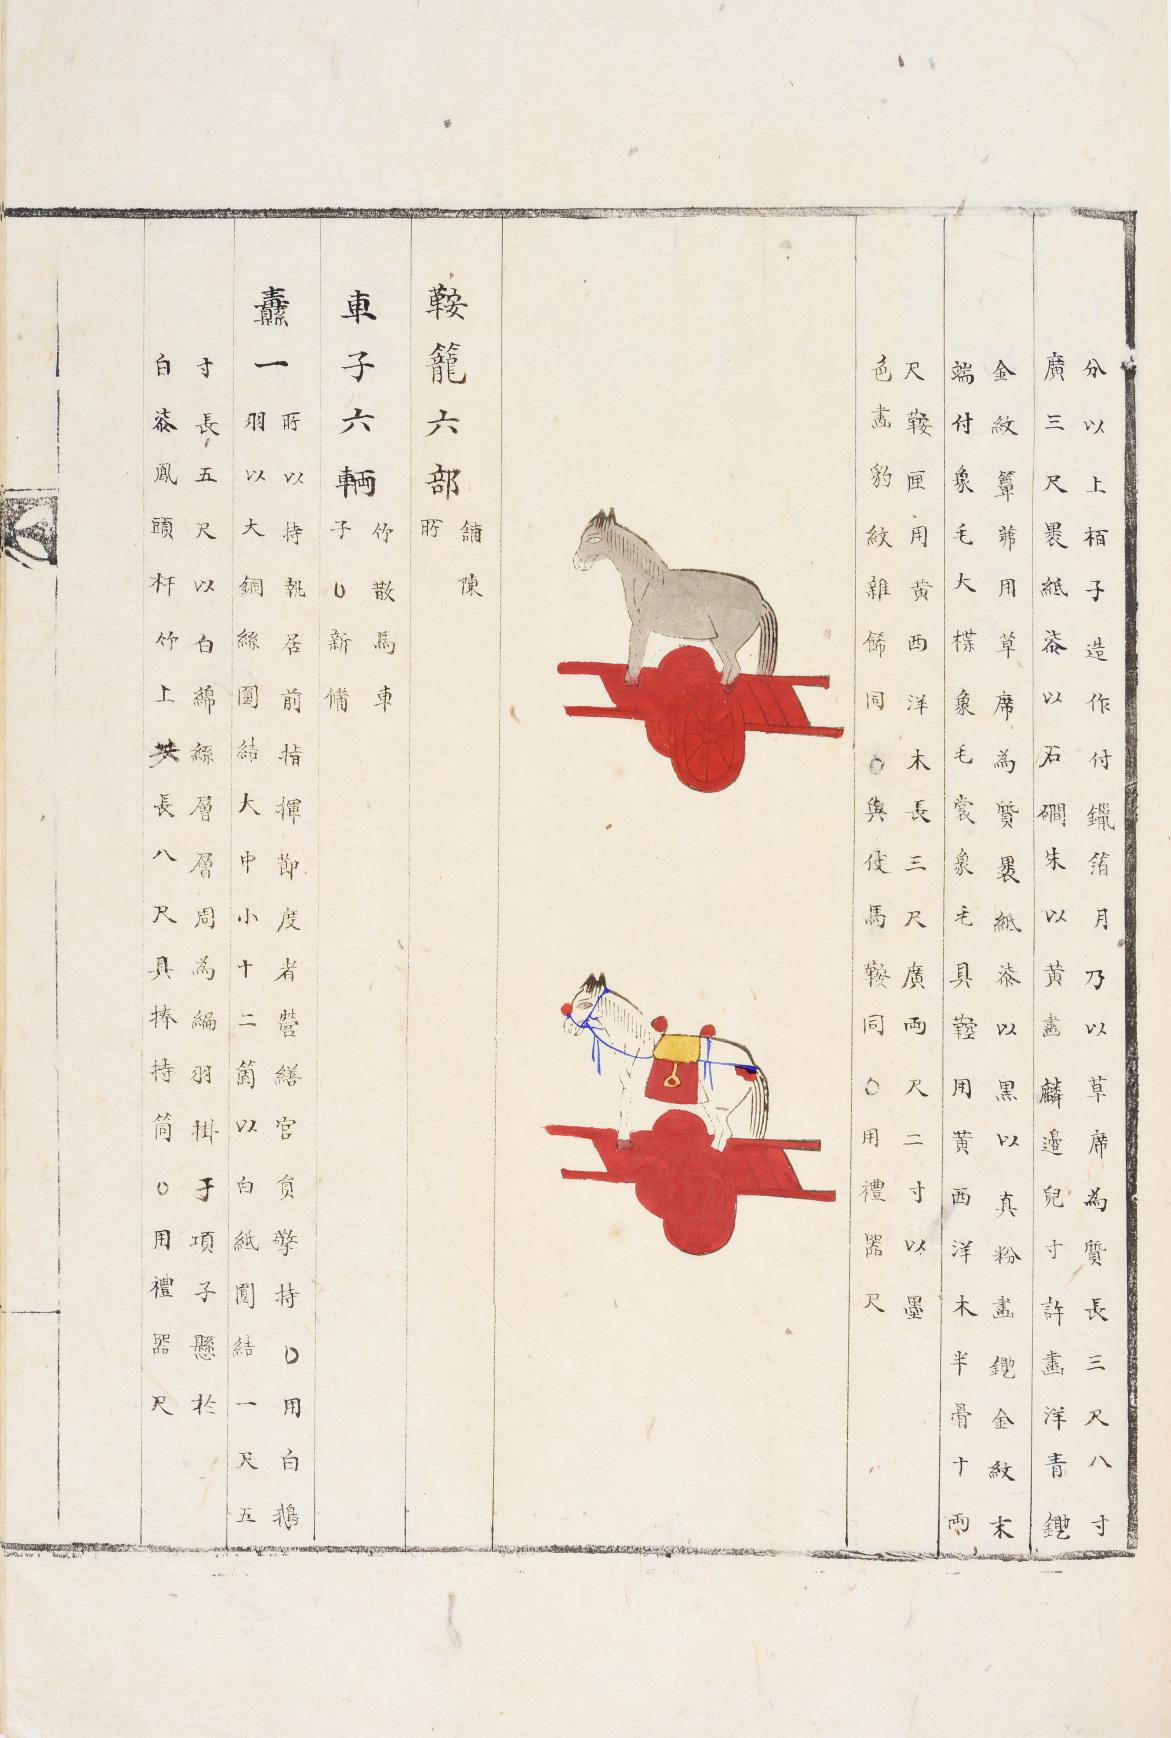 分以上栢子造作付鑞箔月乃以草席為質長三尺八寸
廣三尺褁紙漆以石磵朱以黃畵麟邊兒寸許畵洋青鑞
金紋簟茀用草席為質褁紙漆以黑以真粉畵鑞金紋末
端付象毛大楪象毛裳象毛具鞚用黃西洋木半骨十両
尺鞍匣用黃西洋木長三尺廣両尺二寸以墨
色畵豹紋雜餙同○與仗馬鞍同○用禮器尺
鞍籠六部
鋪陳
所
車子六輌
竹散馬車
子○新備
纛一
所以持執居前指揮節度者營繕官負擎持○用白鵝
羽以大銅絲圓結大中小十二箇以白紙圓結一尺五
寸長五尺以白綿絲層層周為編羽掛于項子懸於
白漆鳳頭杆竹上长八尺具捧持筒○用禮器尺